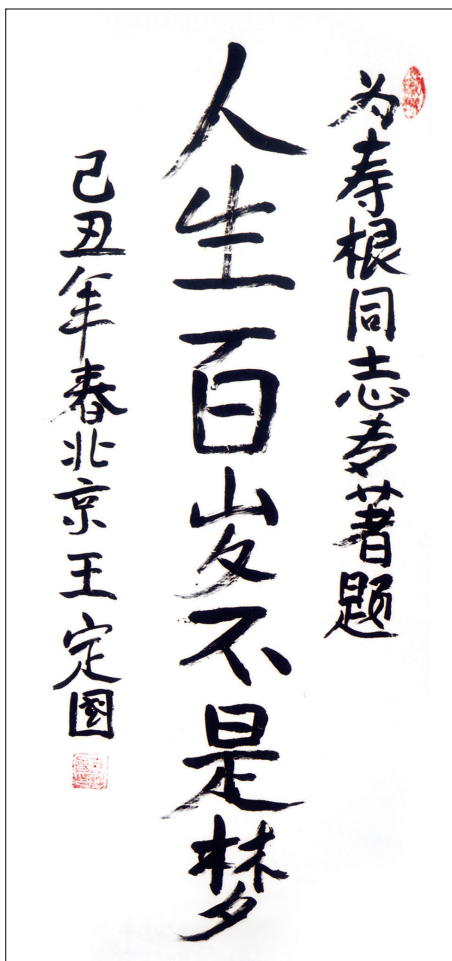 为寿根同志专著题
人生百岁不是梦
己丑年春北京王定國